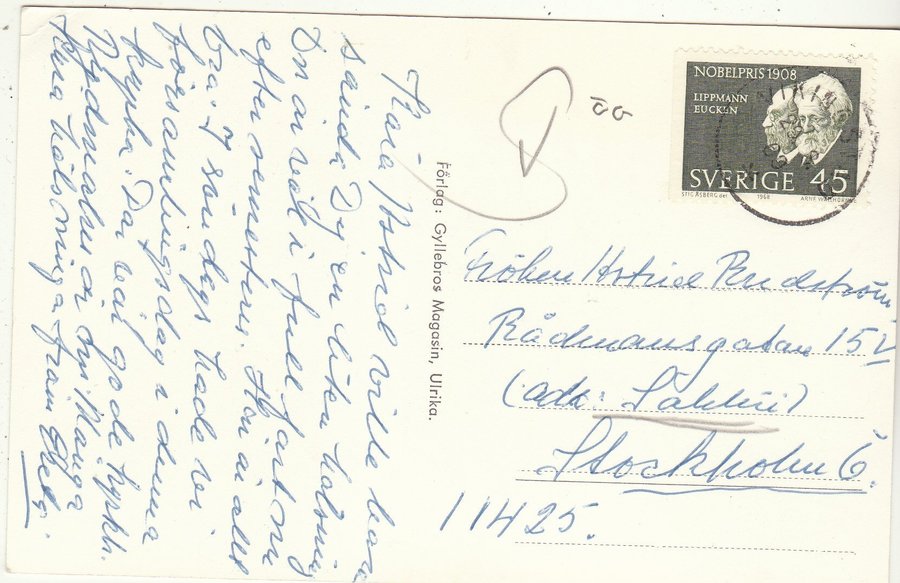 Kära Astrid ville bara
sända Dig en liten hälsning
Du är väl i full fart nu
efter semestern. Här är allt
bra. I söndags hade vi
församlingsdag i denna
kyrka. Där var gode kyrkh.
många
kära hälsningar från
Förlag: Gyllebros Magasin, Ulrika.
NOBELPRIS 1908
LIPPMANN
EUCKEN
SVERIGE 45
STIG ÅSBERG del. 1968 ARNE WALLHORN
Fröken Astrid Rundström
Rådmansgatan 15
(adr.
Stockholm 6.
11425.